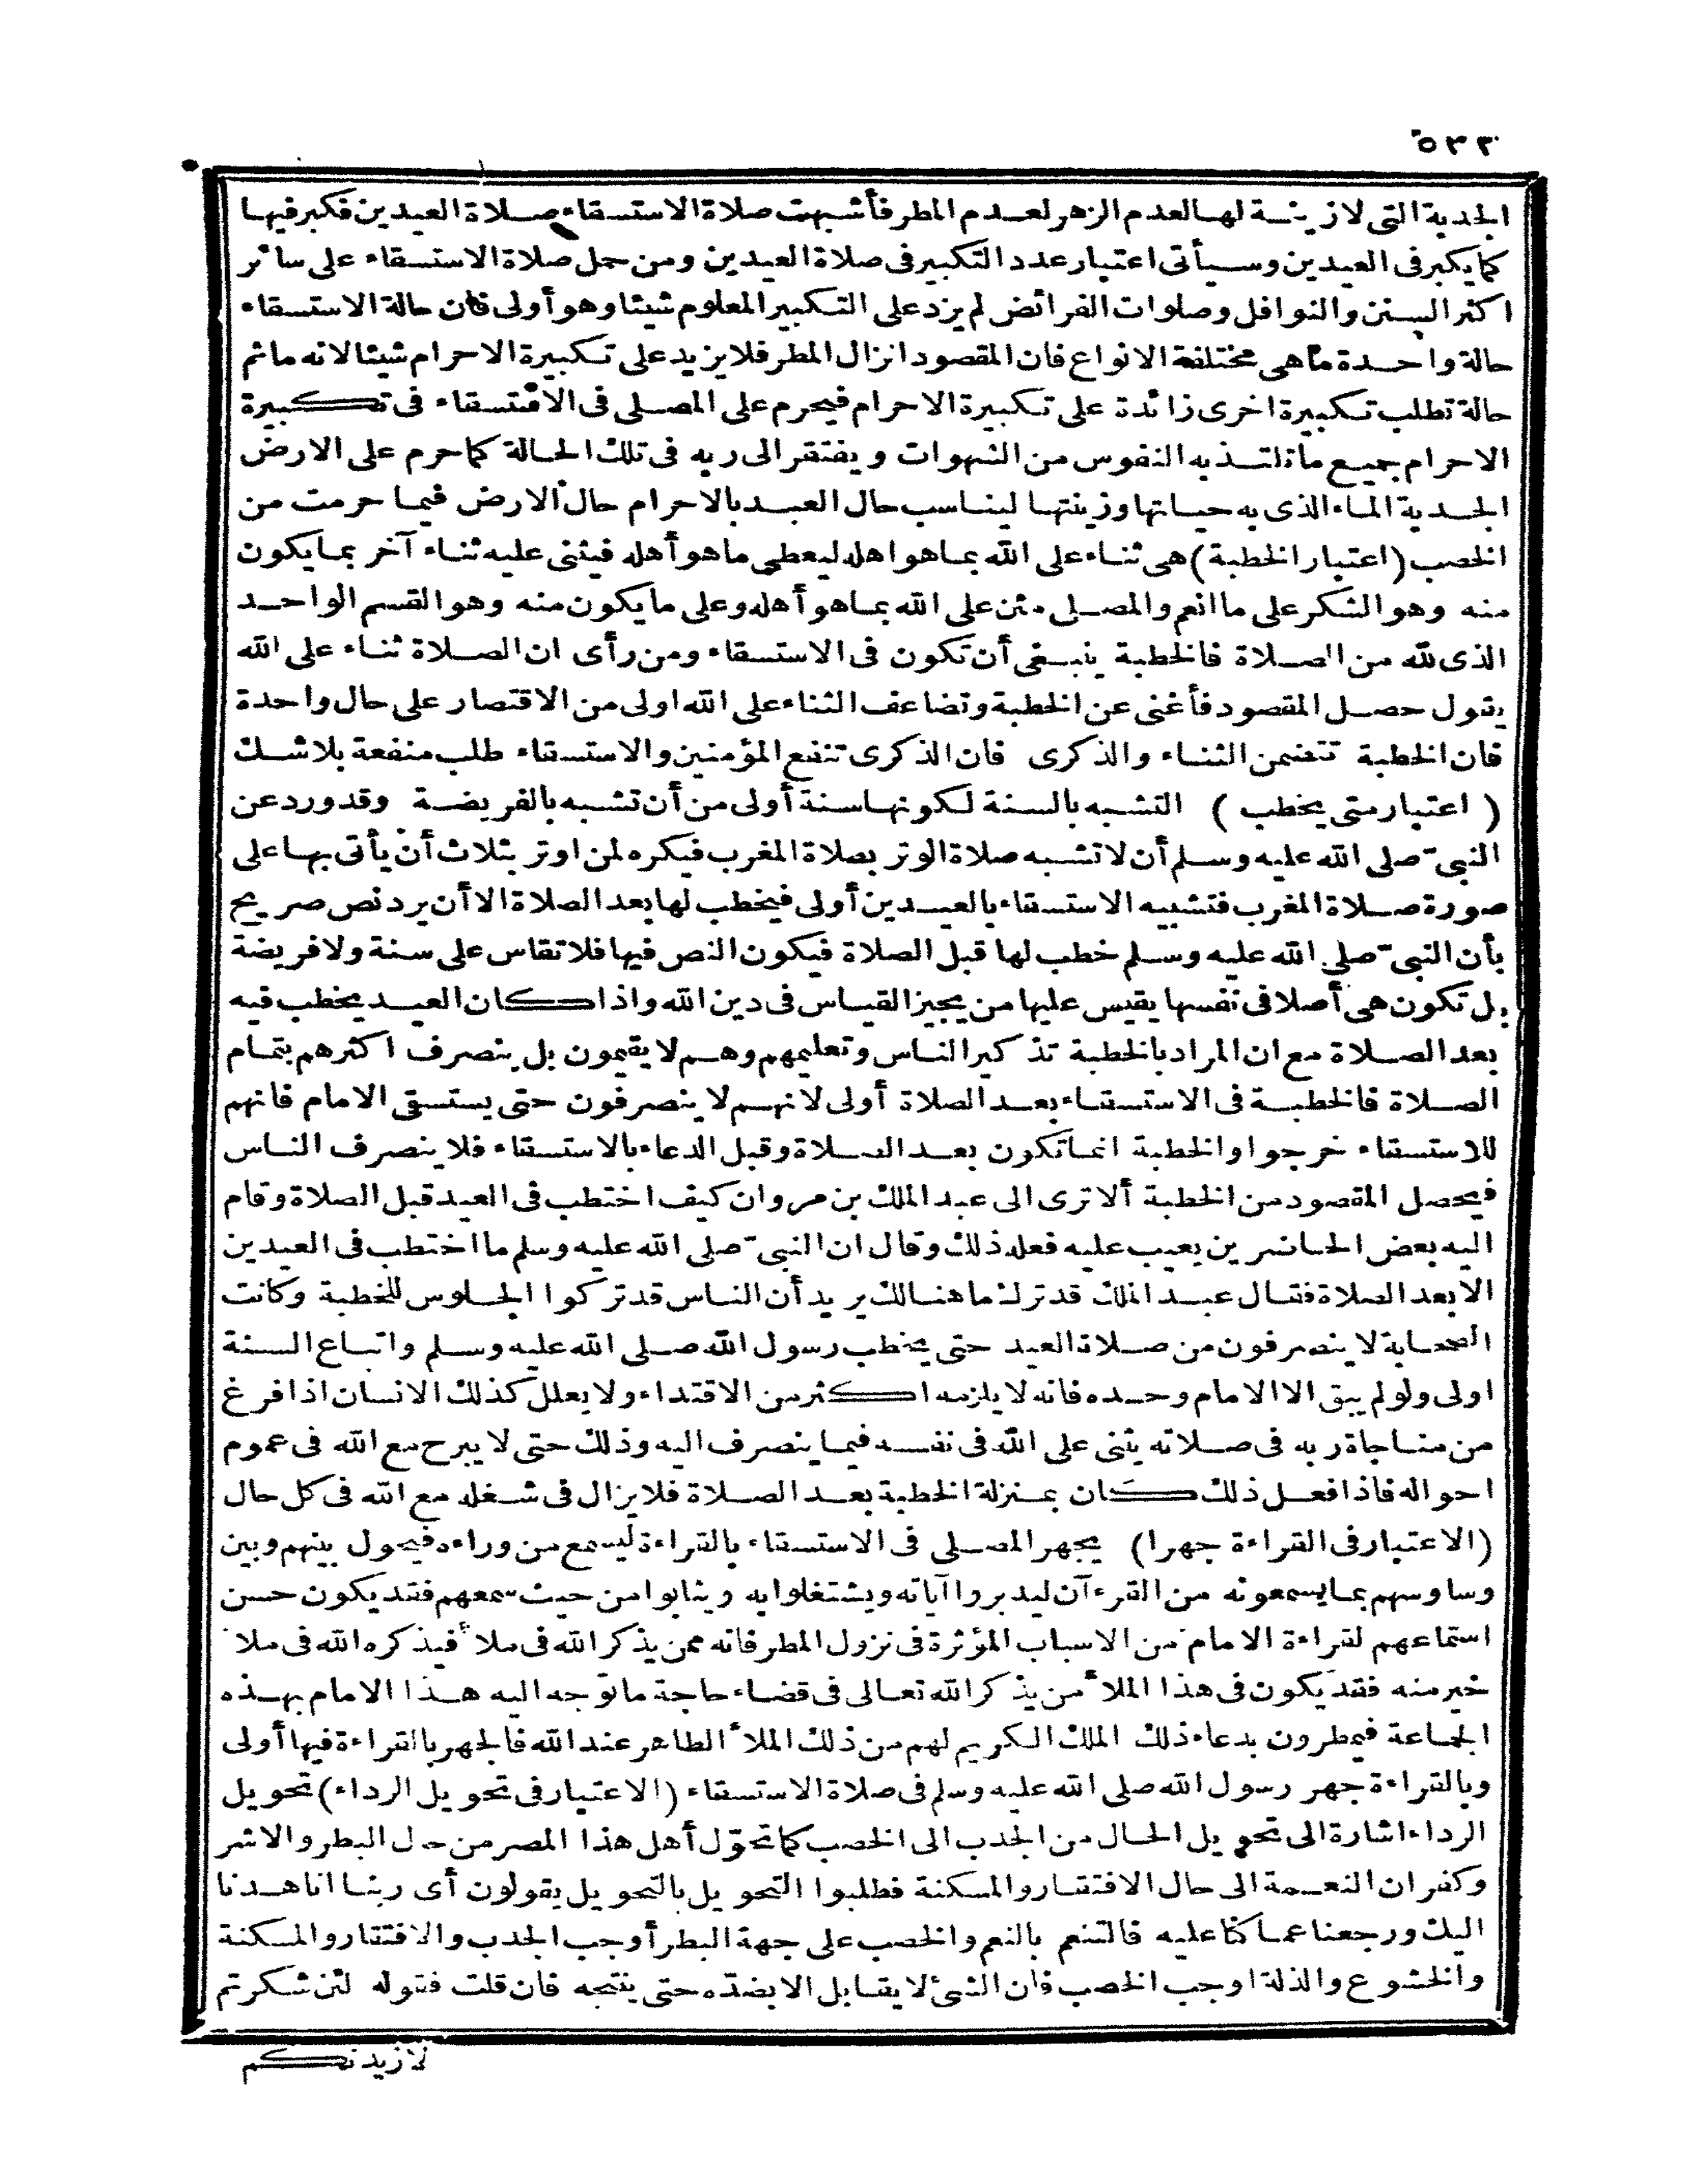 ٥٣٢
الجدبة التى لا زينة لها لعدم الزهر لعدم المطر فأشبهت صلاة الاستسقاء صلاة العيدين فكبر فيها
كما يكبر فى العيدين وسيأتى اعتبار عدد التكبير فى صلاة العيدين ومن حمل صلاة الاستسقاء على سائر
اكثر السنن والنوافل وصلوات الفرائض لم يزد على التكبير المعلوم شيئا وهو أولى فان حالة الاستسقاء
حالة واحدة ما هى مختلفة الانواع فان المقصود انزال المطر فلا يزيد على تكبيرة الاحرام شيئا لانه ما ثم
حالة تطلب تكبيرة اخرى زائدة على تكبيرة الاحرام فيحرم على المصلى فى الاستسقاء فى تكبيرة
الاحرام جميع ما تلتذ به النفوس من الشهوات ويفتقر الى ربه فى تلك الحالة كما حرم على الارض
الجدبة الماء الذى به حياتها وزينتها ليناسب حال العبد بالاحرام حال الارض فيما حرمت من
الخصب (اعتبار الخطبة) هى ثناء على الله بما هو اهله ليعطى ما هو أهله فيثنى عليه ثناء آخر بما يكون
منه وهو الشكر على ما انعم والمصلى مثن على الله بما هو أهله وعلى ما يكون منه وهو القسم الواحد
الذى لله من الصلاة فالخطبة ينبغى أن تكون فى الاستسقاء ومن رأى ان الصلاة ثناء على الله
يقول حصل المقصود فأغنى عن الخطبة وتضاعف الثناء على الله اولى من الاقتصار على حال واحدة
فان الخطبة تتضمن الثناء والذكرى فان الذكرى تنفع المؤمنين والاستسقاء طلب منفعة بلا شك
(اعتبار متى يخطب) التشبه بالسنة لكونها سنة أولى من أن تشبه بالفريضة وقد ورد عن
النبىّ صلى الله عليه وسلم أن لا تشبه صلاة الوتر بصلاة المغرب فيكره لمن اوتر بثلاث أن يأتى بها على
صورة صلاة المغرب فتشبيه الاستسقاء بالعيدين أولى فيخطب لها بعد الصلاة الا أن يرد نص صريح
بأن النبىّ صلى الله عليه وسلم خطب لها قبل الصلاة فيكون النص فيها فلا تقاس على سنة ولا فريضة
بل تكون هى أصلا فى نفسها يقيس عليها من يجيز القياس فى دين الله واذا كان العيد يخطب فيه
بعد الصلاة مع ان المراد بالخطبة تذكير الناس وتعليمهم وهم لا يقيمون بل ينصرف اكثرهم بتمام
الصلاة فالخطبة فى الاستسقاء بعد الصلاة أولى لانهم لا ينصرفون حتى يستسقى الامام فانهم
للاستسقاء خرجوا والخطبة انما تكون بعد الصلاة وقبل الدعاء بالاستسقاء فلا ينصرف الناس
فيحصل المقصود من الخطبة ألا ترى الى عبد الملك بن مروان كيف اختطب فى العيد قبل الصلاة وقام
اليه بعض الحاضرين يعيب عليه فعله ذلك وقال ان النبىّ صلى الله عليه وسلم ما اختطب فى العيدين
الا بعد الصلاة فقال عبد الملك قد ترك ما هنالك يريد أن الناس قد تركوا الجلوس للخطبة وكانت
الصحابة لا ينصرفون من صلاة العيد حتى يخطب رسول الله صلى الله عليه وسلم واتباع السنة
اولى ولو لم يبق الا الامام وحده فانه لا يلزمه اكثر من الاقتداء ولا يعلل كذلك الانسان اذا فرغ
من مناجاة ربه فى صلاته يثنى على الله فى نفسه فيما ينصرف اليه وذلك حتى لا يبرح مع الله فى عموم
احواله فاذا فعل ذلك كان بمنزلة الخطبة بعد الصلاة فلا يزال فى شغله مع الله فى كل حال
(الاعتبار فى القراءة جهرا) يجهر المصلى فى الاستسقاء بالقراءة ليسمع من وراءه فيحول بينهم وبين
وساوسهم بما يسمعونه من القرءآن ليدبروا آياته ويشتغلوا به ويثابوا من حيث سمعهم فقد يكون حسن
استماعهم لقراءة الامام من الاسباب المؤثرة فى نزول المطر فانه ممن يذكر الله فى ملأ فيذكره الله فى ملا
خير منه فقد يكون فى هذا الملأ من يذكر الله تعالى فى قضاء حاجة ما توجه اليه هذا الامام بهذه
الجماعة فيمطرون بدعاء ذلك الملك الكريم لهم من ذلك الملأ الطاهر عند الله فالجهر بالقراءة فيها أولى
وبالقراءة جهر رسول الله صلى الله عليه وسلم فى صلاة الاستسقاء (الاعتبار فى تحويل الرداء) تحويل
الرداء اشارة الى تحويل الحال من الجدب الى الخصب كما تحوّل أهل هذا المصر من حال البطر والاشر
وكفران النعمة الى حال الافتقار والمسكنة فطلبوا التحويل بالتحويل يقولون أى ربنا انا هدنا
اليك ورجعنا عما كنا عليه فالتنعم بالنعم والخصب على جهة البطر أوجب الجدب والافتقار والمسكنة
والخشوع والذلة اوجب الخصب فان الشئ لا يقابل الا بضدّه حتى ينتجه فان قلت فقوله لئن شكرتم
لازيدنكم